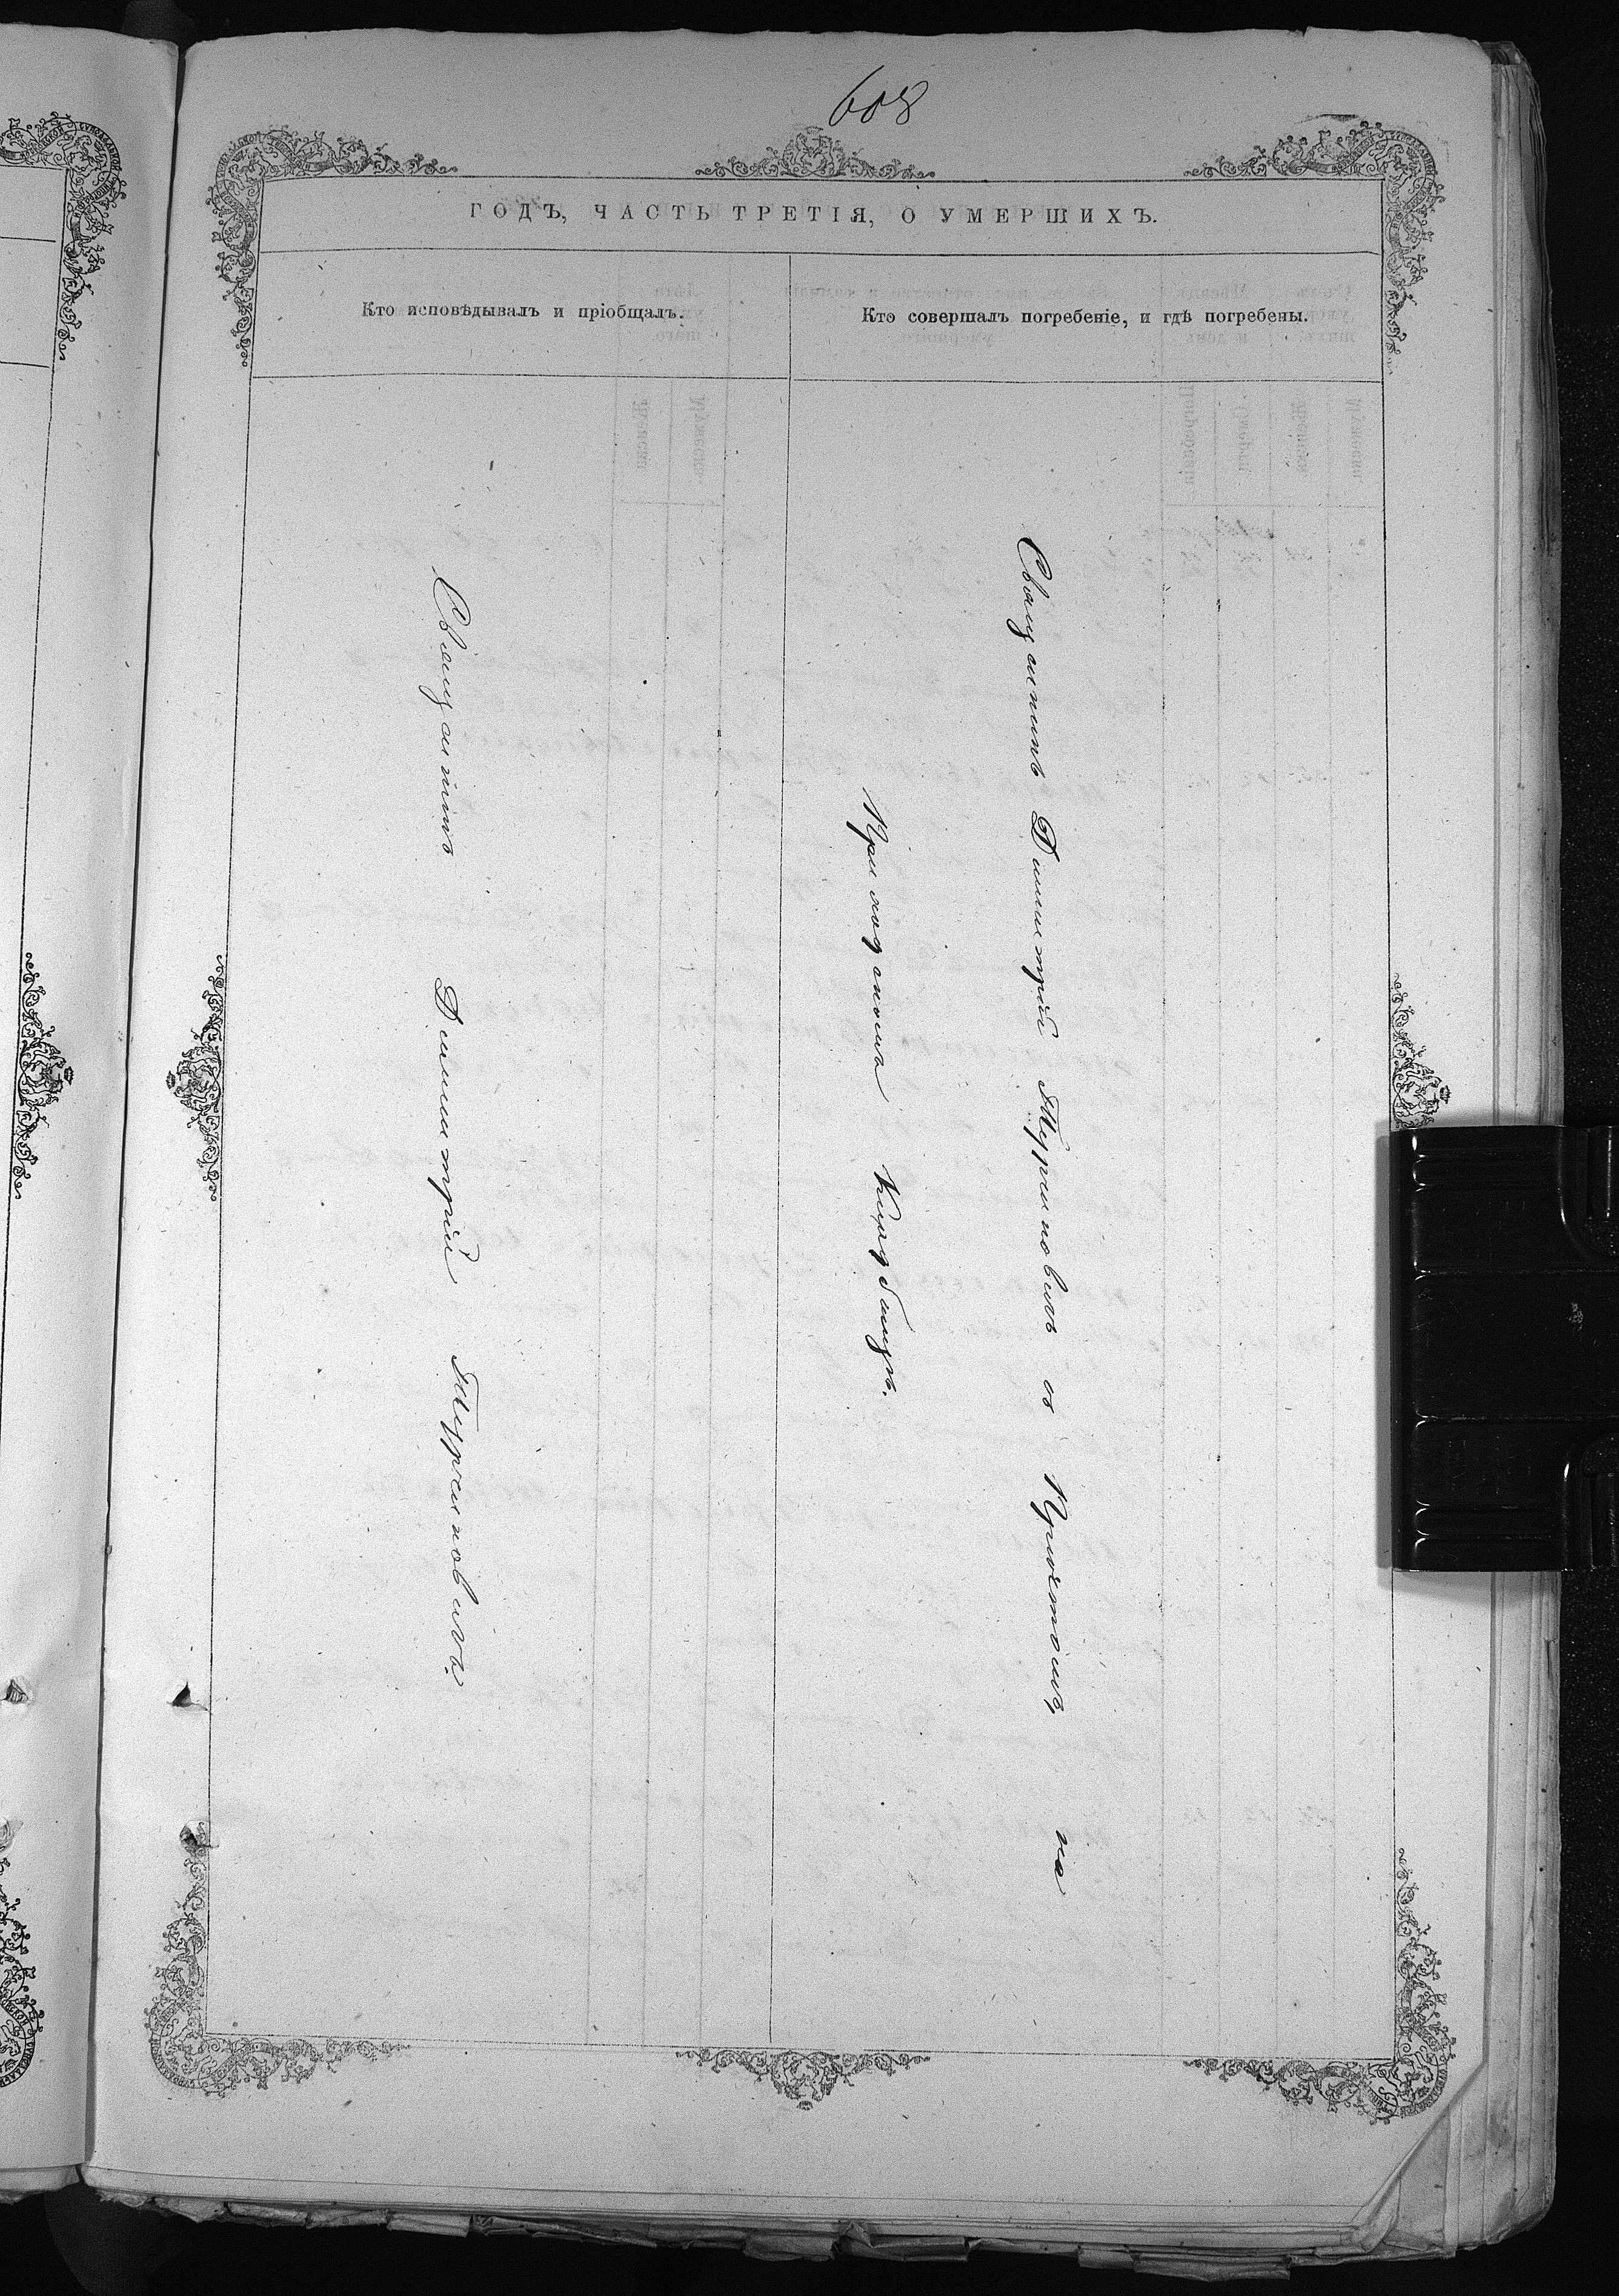 608
ГОДЪ, ЧАСТЬ ТРЕТІЯ, О УМЕРШИХЪ.
Кто исповѣдывалъ и пріобщалъ.
Кто совершалъ погребеніе, и гдѣ погребены.
Священникъ Димитрій
Священникъ Димитрій съ Причтомъ, на
Приходскомъ Кладбищѣ.